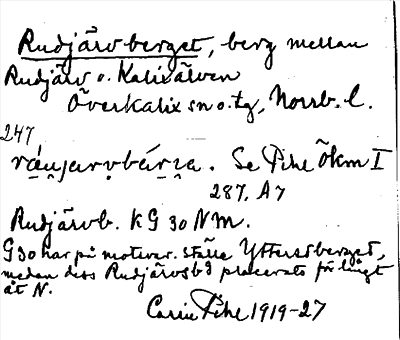 Rudjärvberget, berg mellan
Rudjärv o. Kalixälven
Överkalix sn o. tg, Norrb. l.
247
Se Pihl Ökm I
287, A7
Rudjärvb. KG 30 NM.
G30 har på motsvar. ställe Ytterstberget,
medan dess Rudjärvsb3 placerats för långt
åt N.
Carin Pihl 1919-27